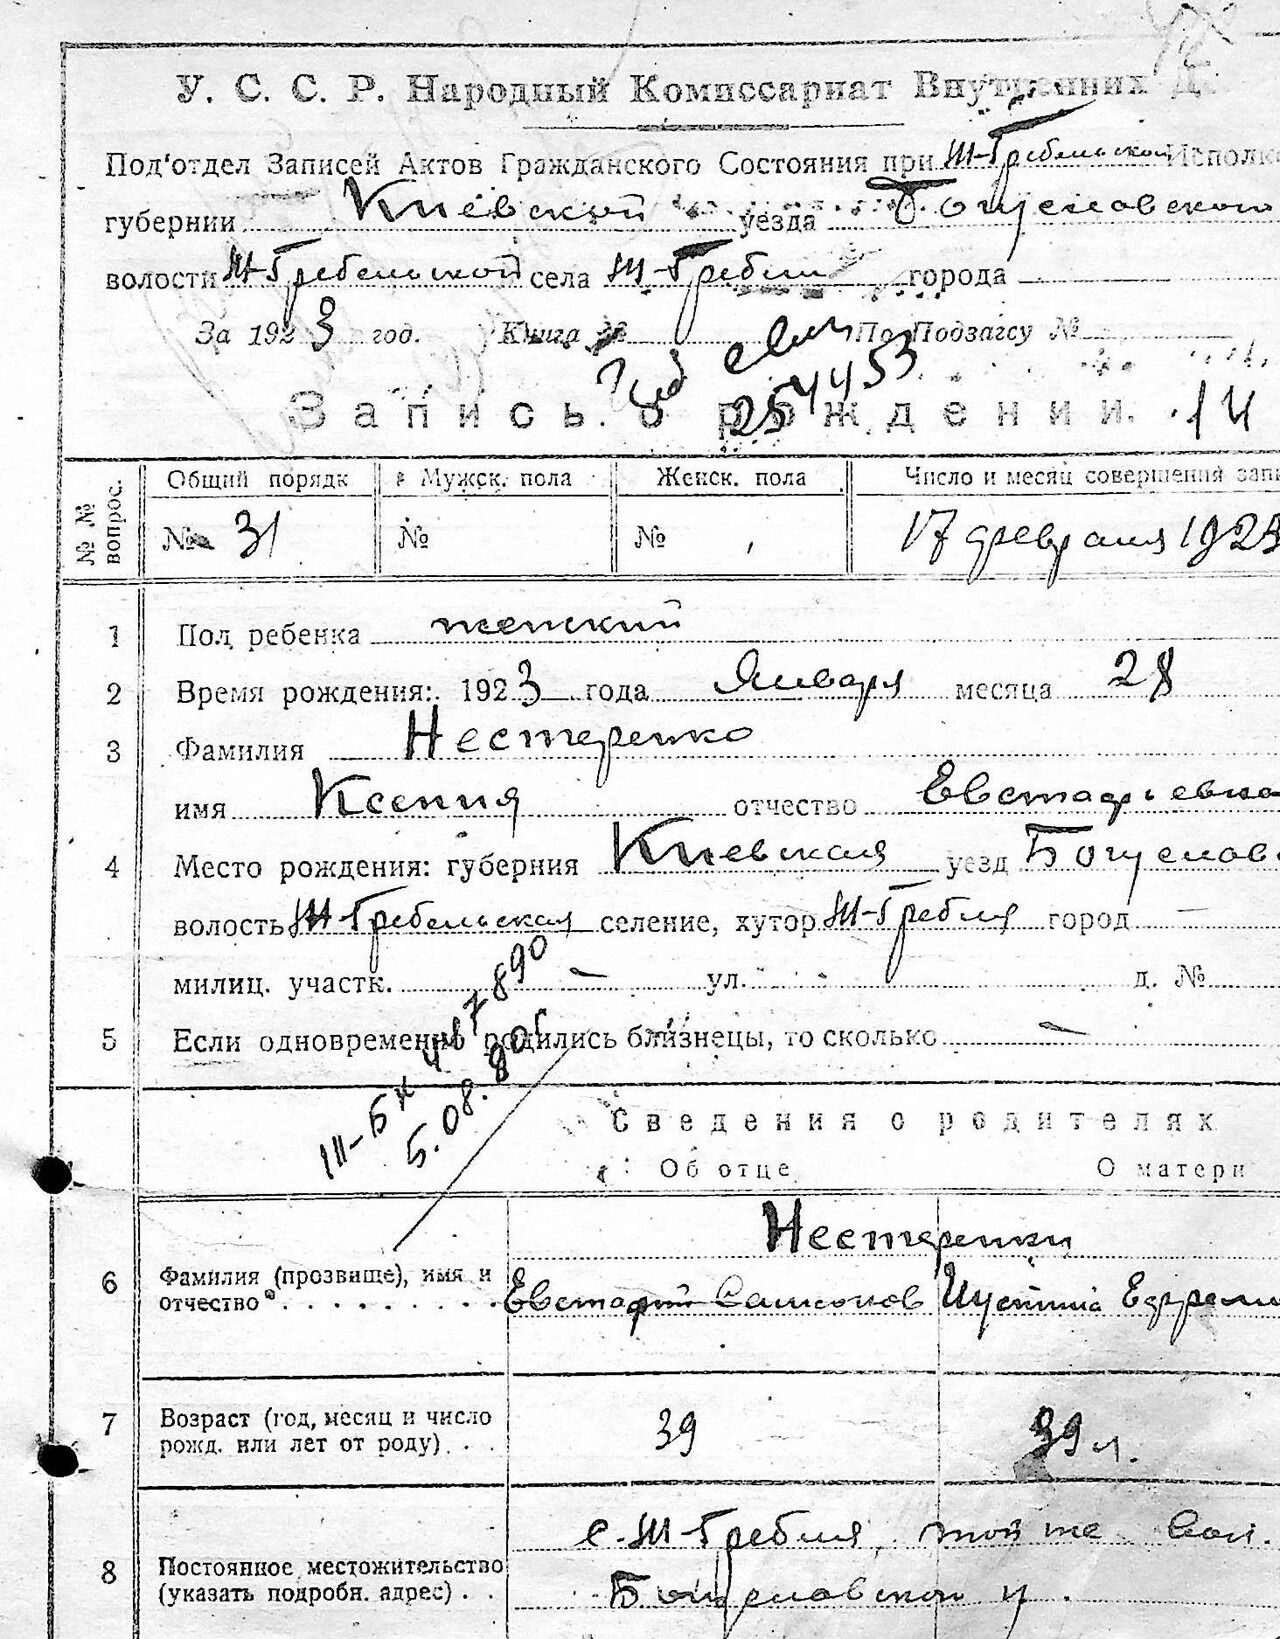 У. С. С. Р. Народный Комиссариат Внутренних Д
Под'отдел Записей Актов Гражданского Состояния при Ш-Гребельском Исполк
губернии Киевской уезда Богуславского
волости Ш-Гребельской села Ш-Гребли города
За 1923 год. Книга № По Подзагсу №
254453
Запись о рождении. 14
№№ вопрос.
Общий порядк Мужск. пола Женск. пола Число и месяц совершения запи
№ 31 № № 17 февраля 1923
1 Пол ребенка женский
2 Время рождения: 1923 года Января месяца 28
3 Фамилия Нестеренко
имя Ксения отчество Евстафиевна
4 Место рождения: губерния Киевская уезд Богуславс
волость Ш-Гребельская селение, хутор Ш-Гребля город —
милиц. участк. — ул. д. №
5 Если одновременно родились близнецы, то сколько —
III-БК 447890
5.08.80г
Сведения о родителях
Об отце О матери
Нестеренки
6 Фамилия (прозвище), имя и отчество Евстафий Самсонов Иустина Ефреми
7 Возраст (год, месяц и число рожд. или лет от роду) 39 39 л.
8 Постоянное местожительство (указать подробн. адрес) с. Ш-Гребля, той же вол.
Богуславского у.